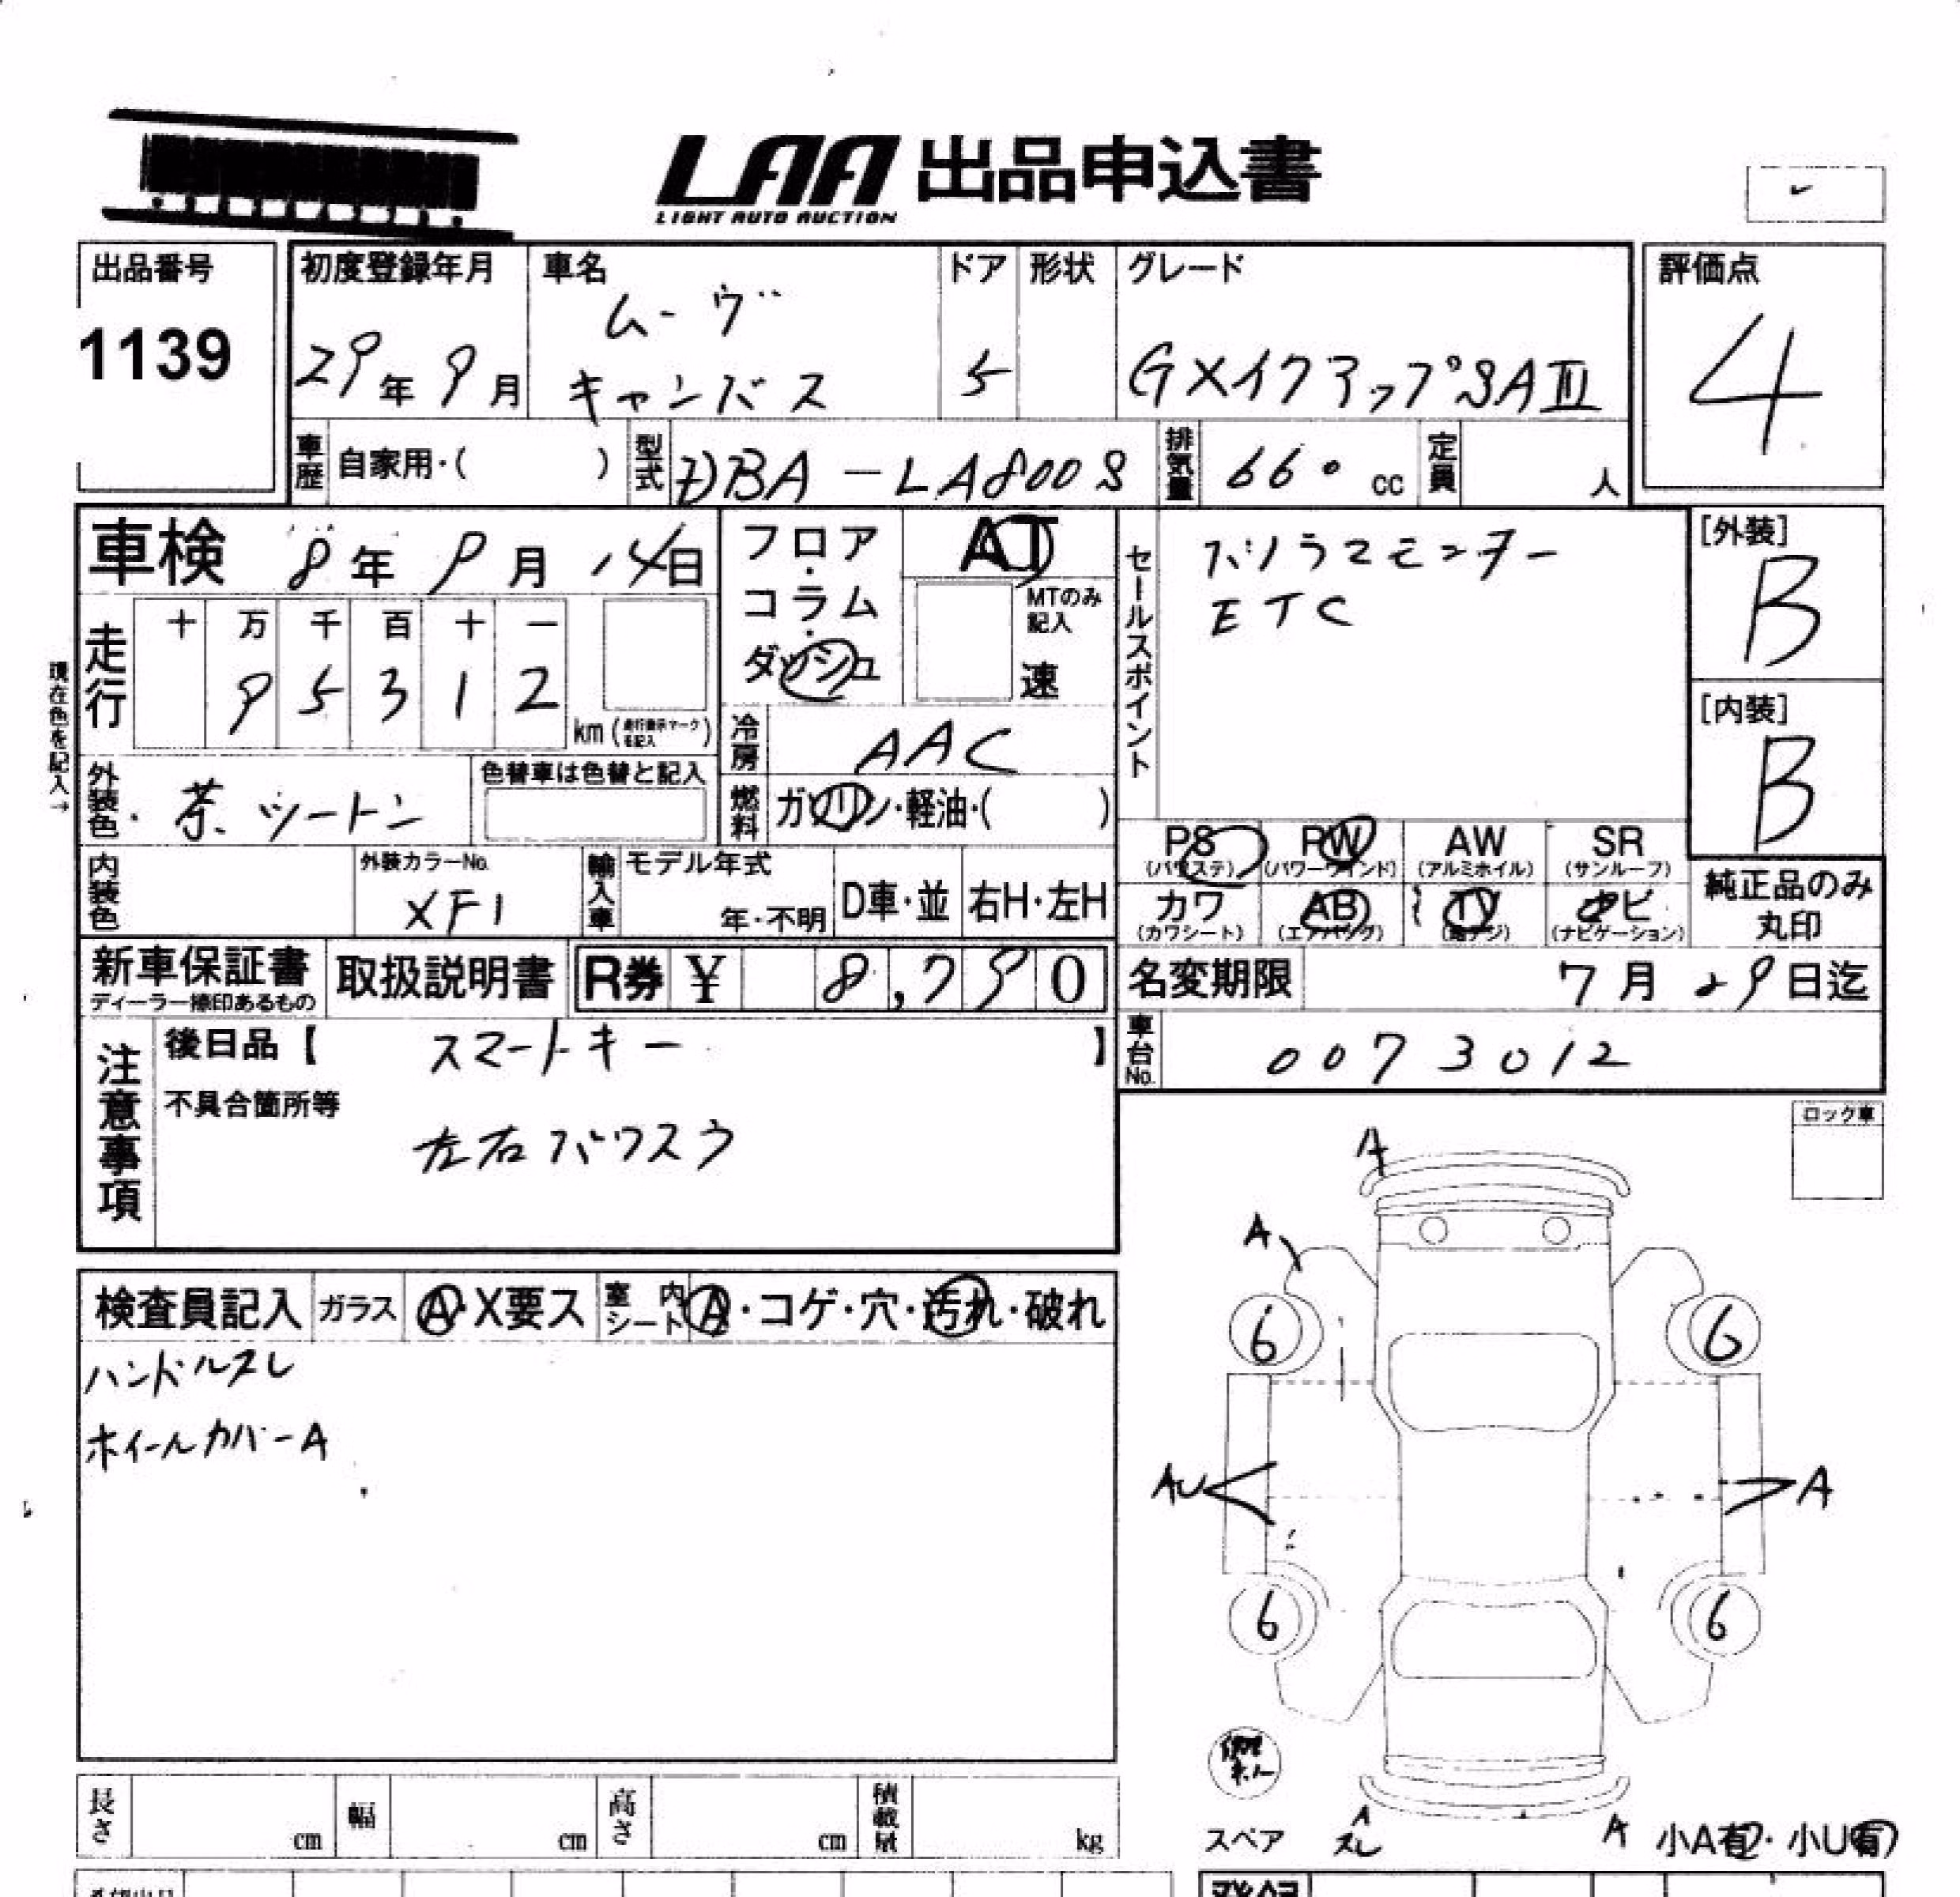 LAA 出品申込書
LIGHT AUTO AUCTION
出品番号
1139
初度登録年月
29年 9月
車名
ムーヴ
キャンバス
ドア
5
形状
グレード
GメイクアップSAⅢ
評価点
4
車歴
自家用・( )
型式
DBA-LA800S
排気量
660 cc
定員
人
車検 8年 9月 14日
フロア・コラム・ダッシュ
AT
MTのみ記入
速
セールスポイント
パノラマモニター
ETC
[外装]
B
[内装]
B
現在色を記入→
走行
十 万 千 百 十 一
9 5 3 1 2
km (走行表示マークを記入)
冷房
AAC
外装色
茶ツートン
色替車は色替と記入
燃料
ガソリン・軽油・( )
PS (パワステ)
PW (パワーウインド)
AW (アルミホイル)
SR (サンルーフ)
カワ (カワシート)
AB (エアバッグ)
TV (地デジ)
ナビ (ナビゲーション)
純正品のみ丸印
内装色
外装カラーNo.
XF1
輸入車
モデル年式
年・不明
D車・並
右H・左H
新車保証書
ディーラー捺印あるもの
取扱説明書
R券 ¥ 8,790
名変期限
7月29日迄
車台No.
0073012
注意事項
後日品【 スマートキー 】
不具合箇所等
左右パワスラ
ロック車
検査員記入
ガラス
A・X要ス
室内シート
A・コゲ・穴・汚れ・破れ
ハンドルスレ
ホイールカバーA
A
A
6
6
AU
A
6
6
スペア
A
スレ
A
小A有・小U有
長さ
cm
幅
cm
高さ
cm
積載量
kg